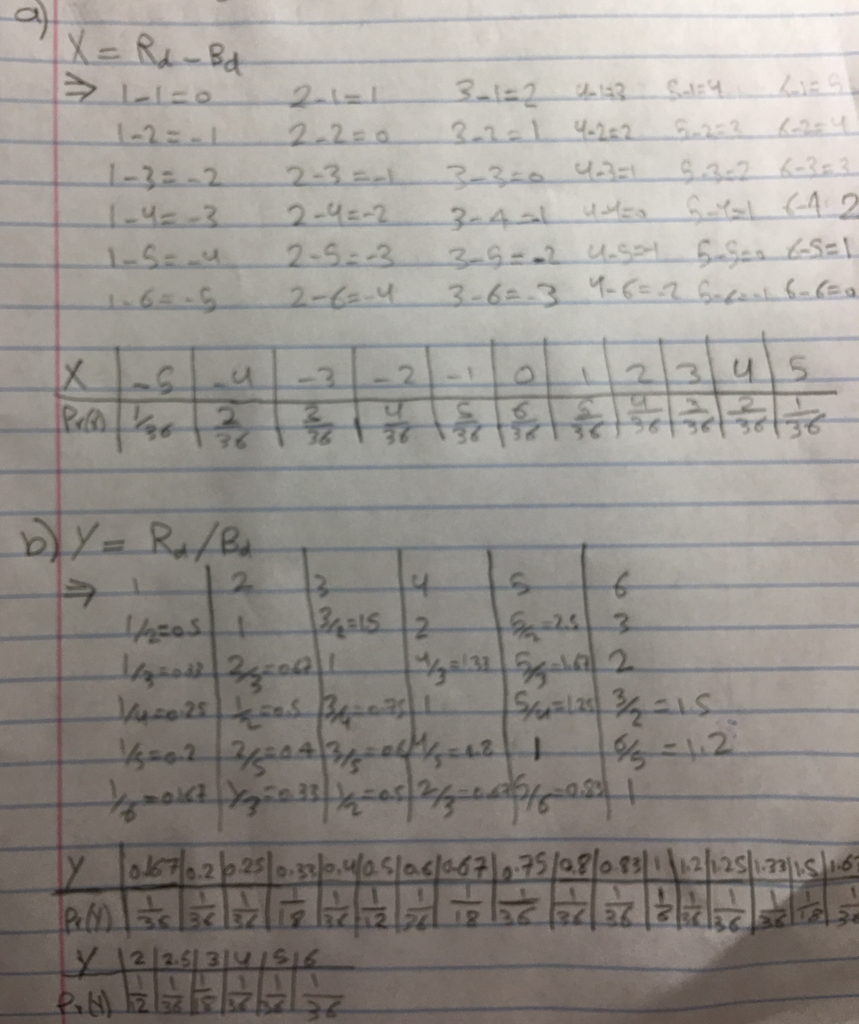 a)
X = Rd - Bd
⇒ 1-1=0 2-1=1 3-1=2 4-1=3 5-1=4 6-1=5
1-2=-1 2-2=0 3-2=1 4-2=2 5-2=3 6-2=4
1-3=-2 2-3=-1 3-3=0 4-3=1 5-3=2 6-3=3
1-4=-3 2-4=-2 3-4=-1 4-4=0 5-4=1 6-4=2
1-5=-4 2-5=-3 3-5=-2 4-5=-1 5-5=0 6-5=1
1-6=-5 2-6=-4 3-6=-3 4-6=-2 5-6=-1 6-6=0
X -5 -4 -3 -2 -1 0 1 2 3 4 5
Pr(X) 1/36 2/36 3/36 4/36 5/36 6/36 5/36 4/36 3/36 2/36 1/36
b) Y = Rd/Bd
⇒ 1 2 3 4 5 6
1/2=0.5 1 3/2=1.5 2 5/2=2.5 3
1/3=0.33 2/3=0.67 1 4/3=1.33 5/3=1.67 2
1/4=0.25 1/2=0.5 3/4=0.75 1 5/4=1.25 3/2=1.5
1/5=0.2 2/5=0.4 3/5=0.6 4/5=0.8 1 6/5=1.2
1/6=0.167 1/3=0.33 1/2=0.5 2/3=0.67 5/6=0.83 1
Y 0.167 0.2 0.25 0.33 0.4 0.5 0.6 0.67 0.75 0.8 0.83 1 1.2 1.25 1.33 1.5 1.67
Pr(Y) 1/36 1/36 1/36 1/18 1/36 1/12 1/36 1/18 1/36 1/36 1/36 1/6 1/36 1/36 1/36 1/18 1/36
Y 2 2.5 3 4 5 6
Pr(Y) 1/12 1/36 1/18 1/36 1/36 1/36